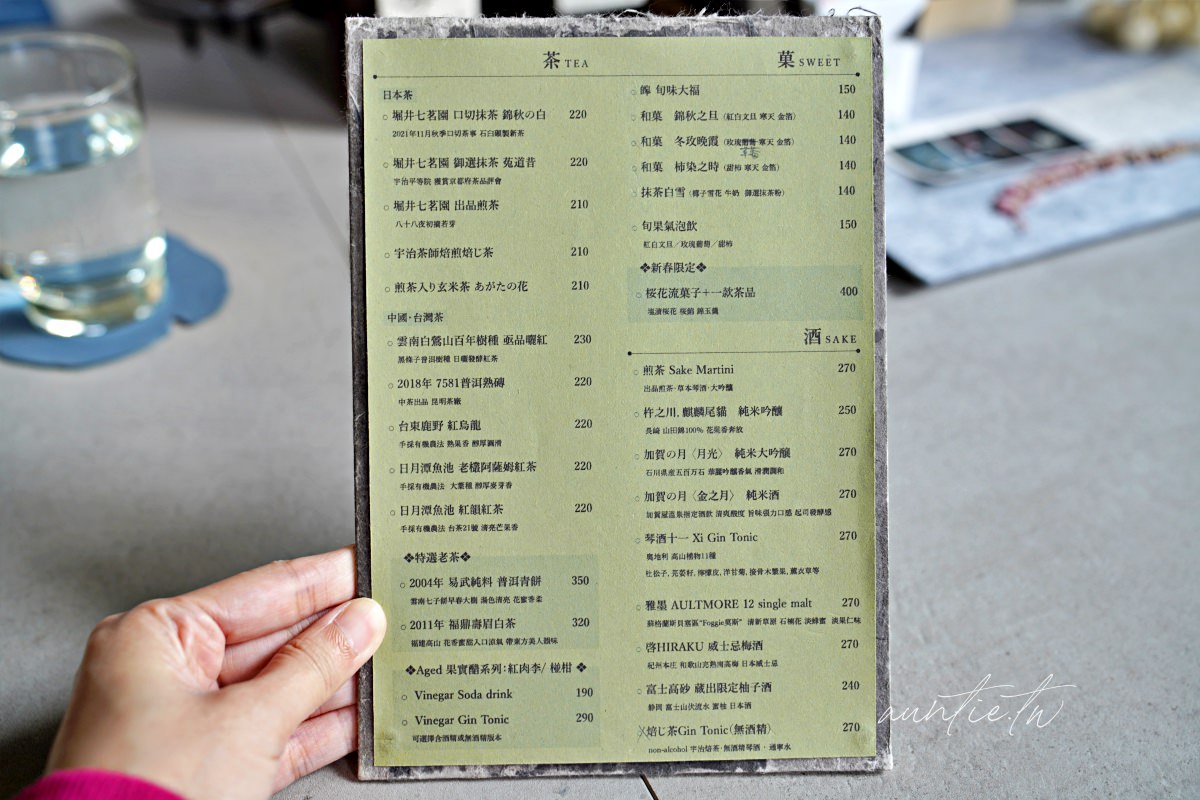 茶 TEA
日本茶
堀井七茗園 口切抹茶 錦秋の白 220
2021年11月秋季口切茶事 石臼碾製新茶
堀井七茗園 御選抹茶 菀道昔 220
宇治平等院 獲賞京都府茶品評會
堀井七茗園 出品煎茶 210
八十八夜初摘若芽
宇治茶師焙煎焙じ茶 210
煎茶入り玄米茶 あがたの花 210
中國·台灣茶
雲南白鶯山百年樹種 亟品曬紅 230
黑條子普洱樹種 日曬發酵紅茶
2018年 7581普洱熟磚 220
中茶出品 昆明茶廠
台東鹿野 紅烏龍 220
手採有機農法 熟果香 醇厚圓滑
日月潭魚池 老欉阿薩姆紅茶 220
手採有機農法 大葉種 醇厚麥芽香
日月潭魚池 紅韻紅茶 220
手採有機農法 台茶21號 清亮芒果香
❖特選老茶❖
2004年 易武純料 普洱青餅 350
雲南七子餅早春大樹 湯色清亮 花蜜香柔
2011年 福鼎壽眉白茶 320
福建高山 花香蜜甜入口涼氣 帶東方美人韻味
❖Aged 果實醋系列：紅肉李/ 椪柑 ❖
Vinegar Soda drink 190
Vinegar Gin Tonic 290
可選擇含酒精或無酒精版本
菓 SWEET
旬味大福 150
和菓 錦秋之旦 (紅白文旦 寒天 金箔) 140
和菓 冬玫晚霞 (玫瑰葡萄 寒天 金箔) 140
和菓 柿染之時 (甜柿 寒天 金箔) 140
抹茶白雪 (椰子雪花 牛奶 篩選抹茶粉) 140
旬果氣泡飲 150
紅白文旦／玫瑰葡萄／甜柿
❖新春限定❖
桜花流菓子＋一款茶品 400
塩漬桜花 桜餡 錦玉羹
酒 SAKE
煎茶 Sake Martini 270
出品煎茶·草本琴酒·大吟釀
杵之川, 麒麟尾貓 純米吟釀 250
長崎 山田錦100% 花果香奔放
加賀の月〈月光〉 純米大吟釀 270
石川県産五百万石 華麗吟釀香氣 滑潤調和
加賀の月〈金之月〉 純米酒 270
加賀屋温泉指定酒飲 清爽酸度 旨味張力口感 起司發酵感
琴酒十一 Xi Gin Tonic 270
奧地利 高山植物11種
杜松子, 芫荽籽, 檸檬皮, 洋甘菊, 接骨木漿果, 薰衣草等
雅墨 AULTMORE 12 single malt 270
蘇格蘭斯貝塞區"Foggie莫斯" 清新草原 石楠花 淡蜂蜜 淡果仁味
啓HIRAKU 威士忌梅酒 270
紀州本庄 和歌山完熟南高梅 日本威士忌
富士高砂 蔵出限定柚子酒 240
静岡 富士山伏流水 蜜柚 日本酒
焙じ茶Gin Tonic〈無酒精〉 270
non-alcohol 宇治焙茶·無酒精琴酒·通寧水
auntie.tw